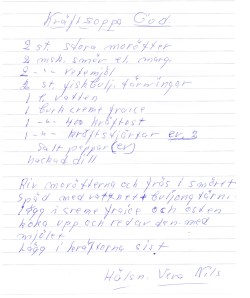 Kräftsoppa God.
2 st. stora morötter
2 msk. smör el. marg.
2 -"- vetemjöl
2 st. fiskbulj. tärningar
1 L vatten
1 burk creme fraice
1 -"- 400 kräftost
1 -"- kräftstjärtar ev. 2
Salt peppar (ev)
hackad dill
Riv morötterna och fräs i smöret
Späd med vattnet + buljong tärn.
Lägg i creme fraice och osten
koka upp och red av den med
mjölet
Lägg i kräftorna sist
Hälsn. Vera Nils